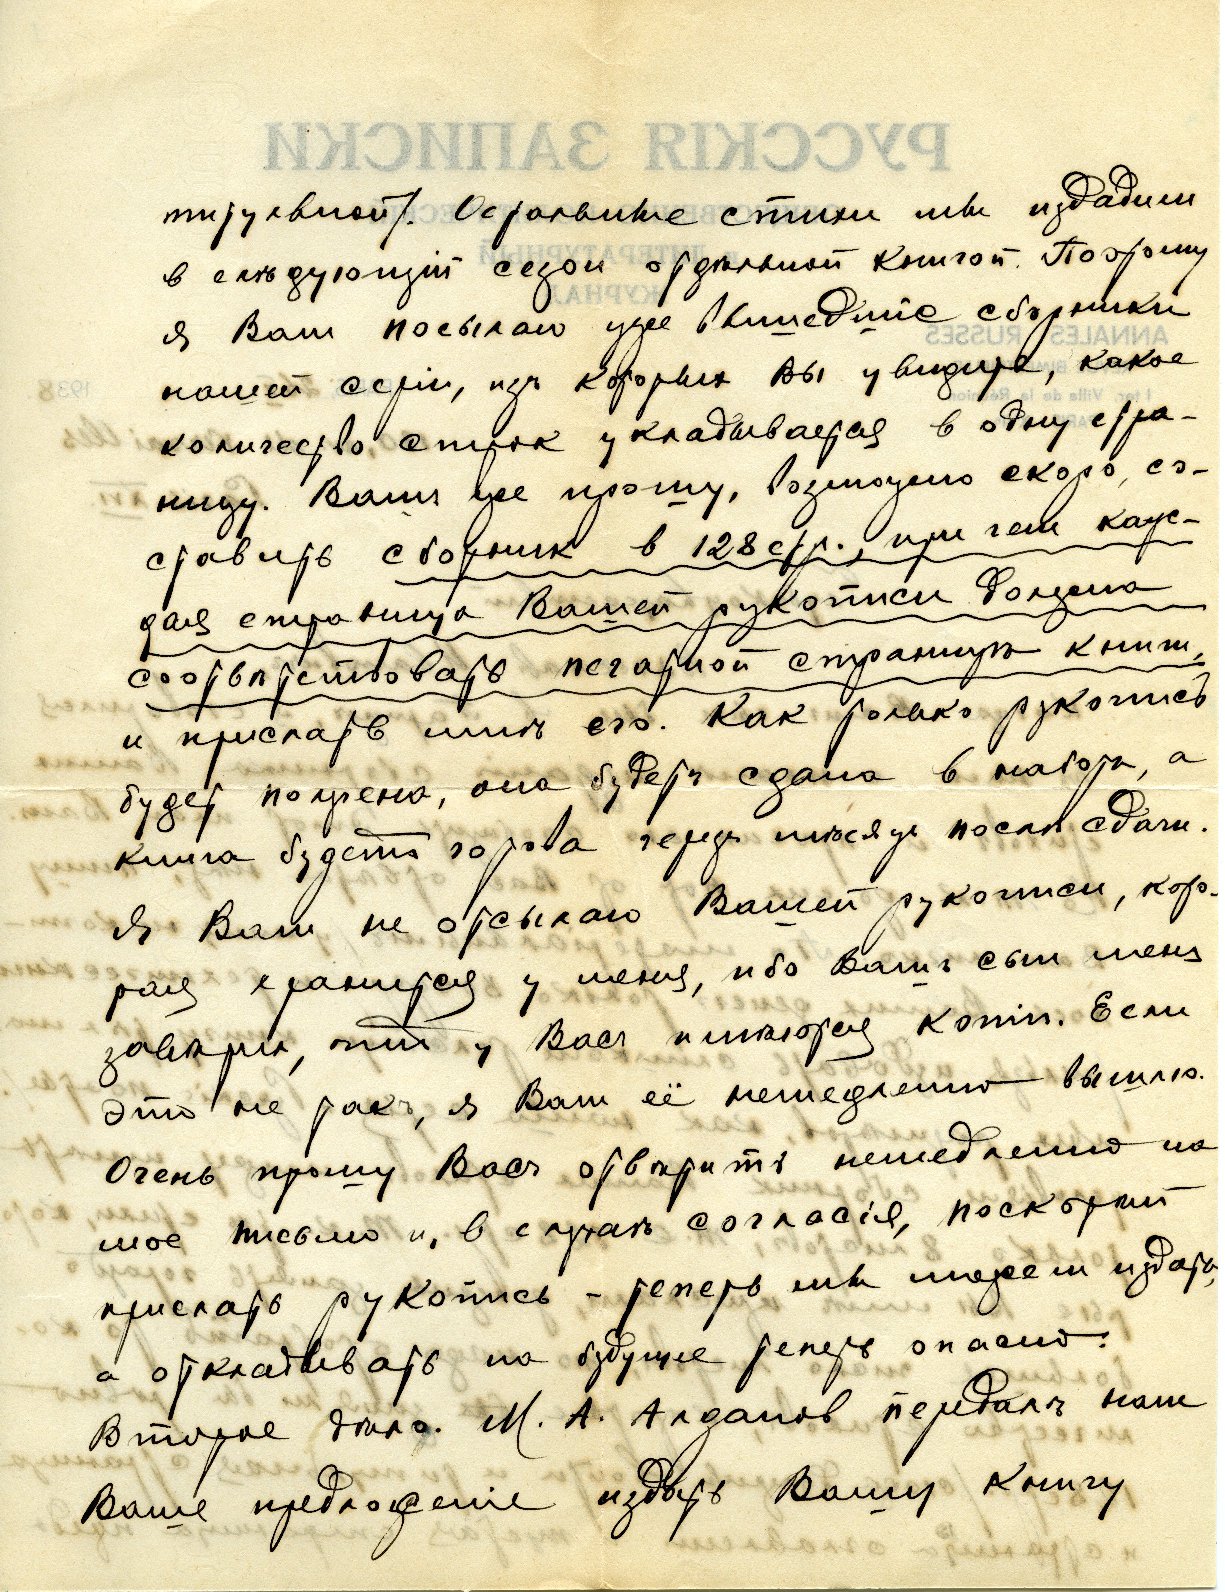 титульной/. Остальные стихи мы издадим
в слѣдующій сезон отдѣльной книгой. Поэтому
я Вам посылаю уже вышедшіе сборники
нашей серіи, изъ которых Вы увидите, какое
количество строк укладывается в одну стра-
ницу. Васъ же прошу, возможно скоро, со-
ставить сборник в 128 стр., при чем каж-
дая страница Вашей рукописи должна
соотвѣтствовать печатной страницѣ книги,
и прислать мнѣ его. Как только рукопись
будет получена, она будетъ сдана в набор, а
книга будетъ готова через мѣсяцъ послѣ сдачи.
Я Вам не отсылаю Вашей рукописи, кото-
рая хранится у меня, ибо Вашъ сын меня
завѣрил, что у Васъ имѣются копіи. Если
это не такъ, я Вам её немедленно вышлю.
Очень прошу Васъ отвѣтить немедленно на
мое письмо и, в случаѣ согласія, поскорѣй
прислать рукопись - теперь мы можем издать,
а откладывать на будущее теперь опасно.
Второе дѣло. М. А. Алданов передалъ нам
Ваше предложеніе издать Вашу книгу
РУССКІЯ ЗАПИСКИ
ЛИТЕРАТУРНЫЙ
ЖУРНАЛ
ANNALES RUSSES
1938